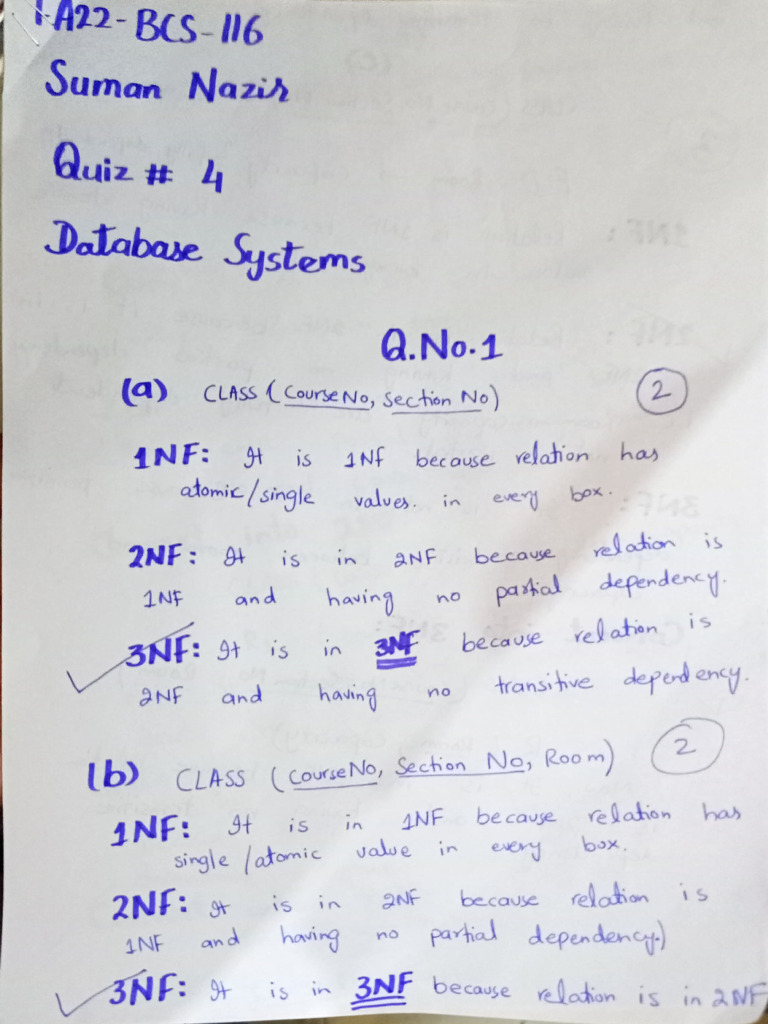 FA22-BCS-116
Suman Nazir
Quiz # 4
Database Systems
Q.No.1
(a) CLASS (CourseNo, Section No) 2
1NF: It is 1NF because relation has
atomic/single values. in every box.
2NF: It is in 2NF because relation is
1NF and having no partial dependency.
3NF: It is in 3NF because relation is
2NF and having no transitive dependency.
(b) CLASS (CourseNo, Section No, Room) 2
1NF: It is in 1NF because relation has
single/atomic value in every box.
2NF: It is in 2NF because relation is
1NF and having no partial dependency.)
3NF: It is in 3NF because relation is in 2NF